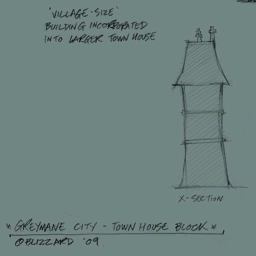 "VILLAGE-SIZE"
BUILDING INCORPORATED
INTO LARGER TOWN HOUSE
X-SECTION
"GREYMANE CITY - TOWN HOUSE BLOCK"
©BLIZZARD '09